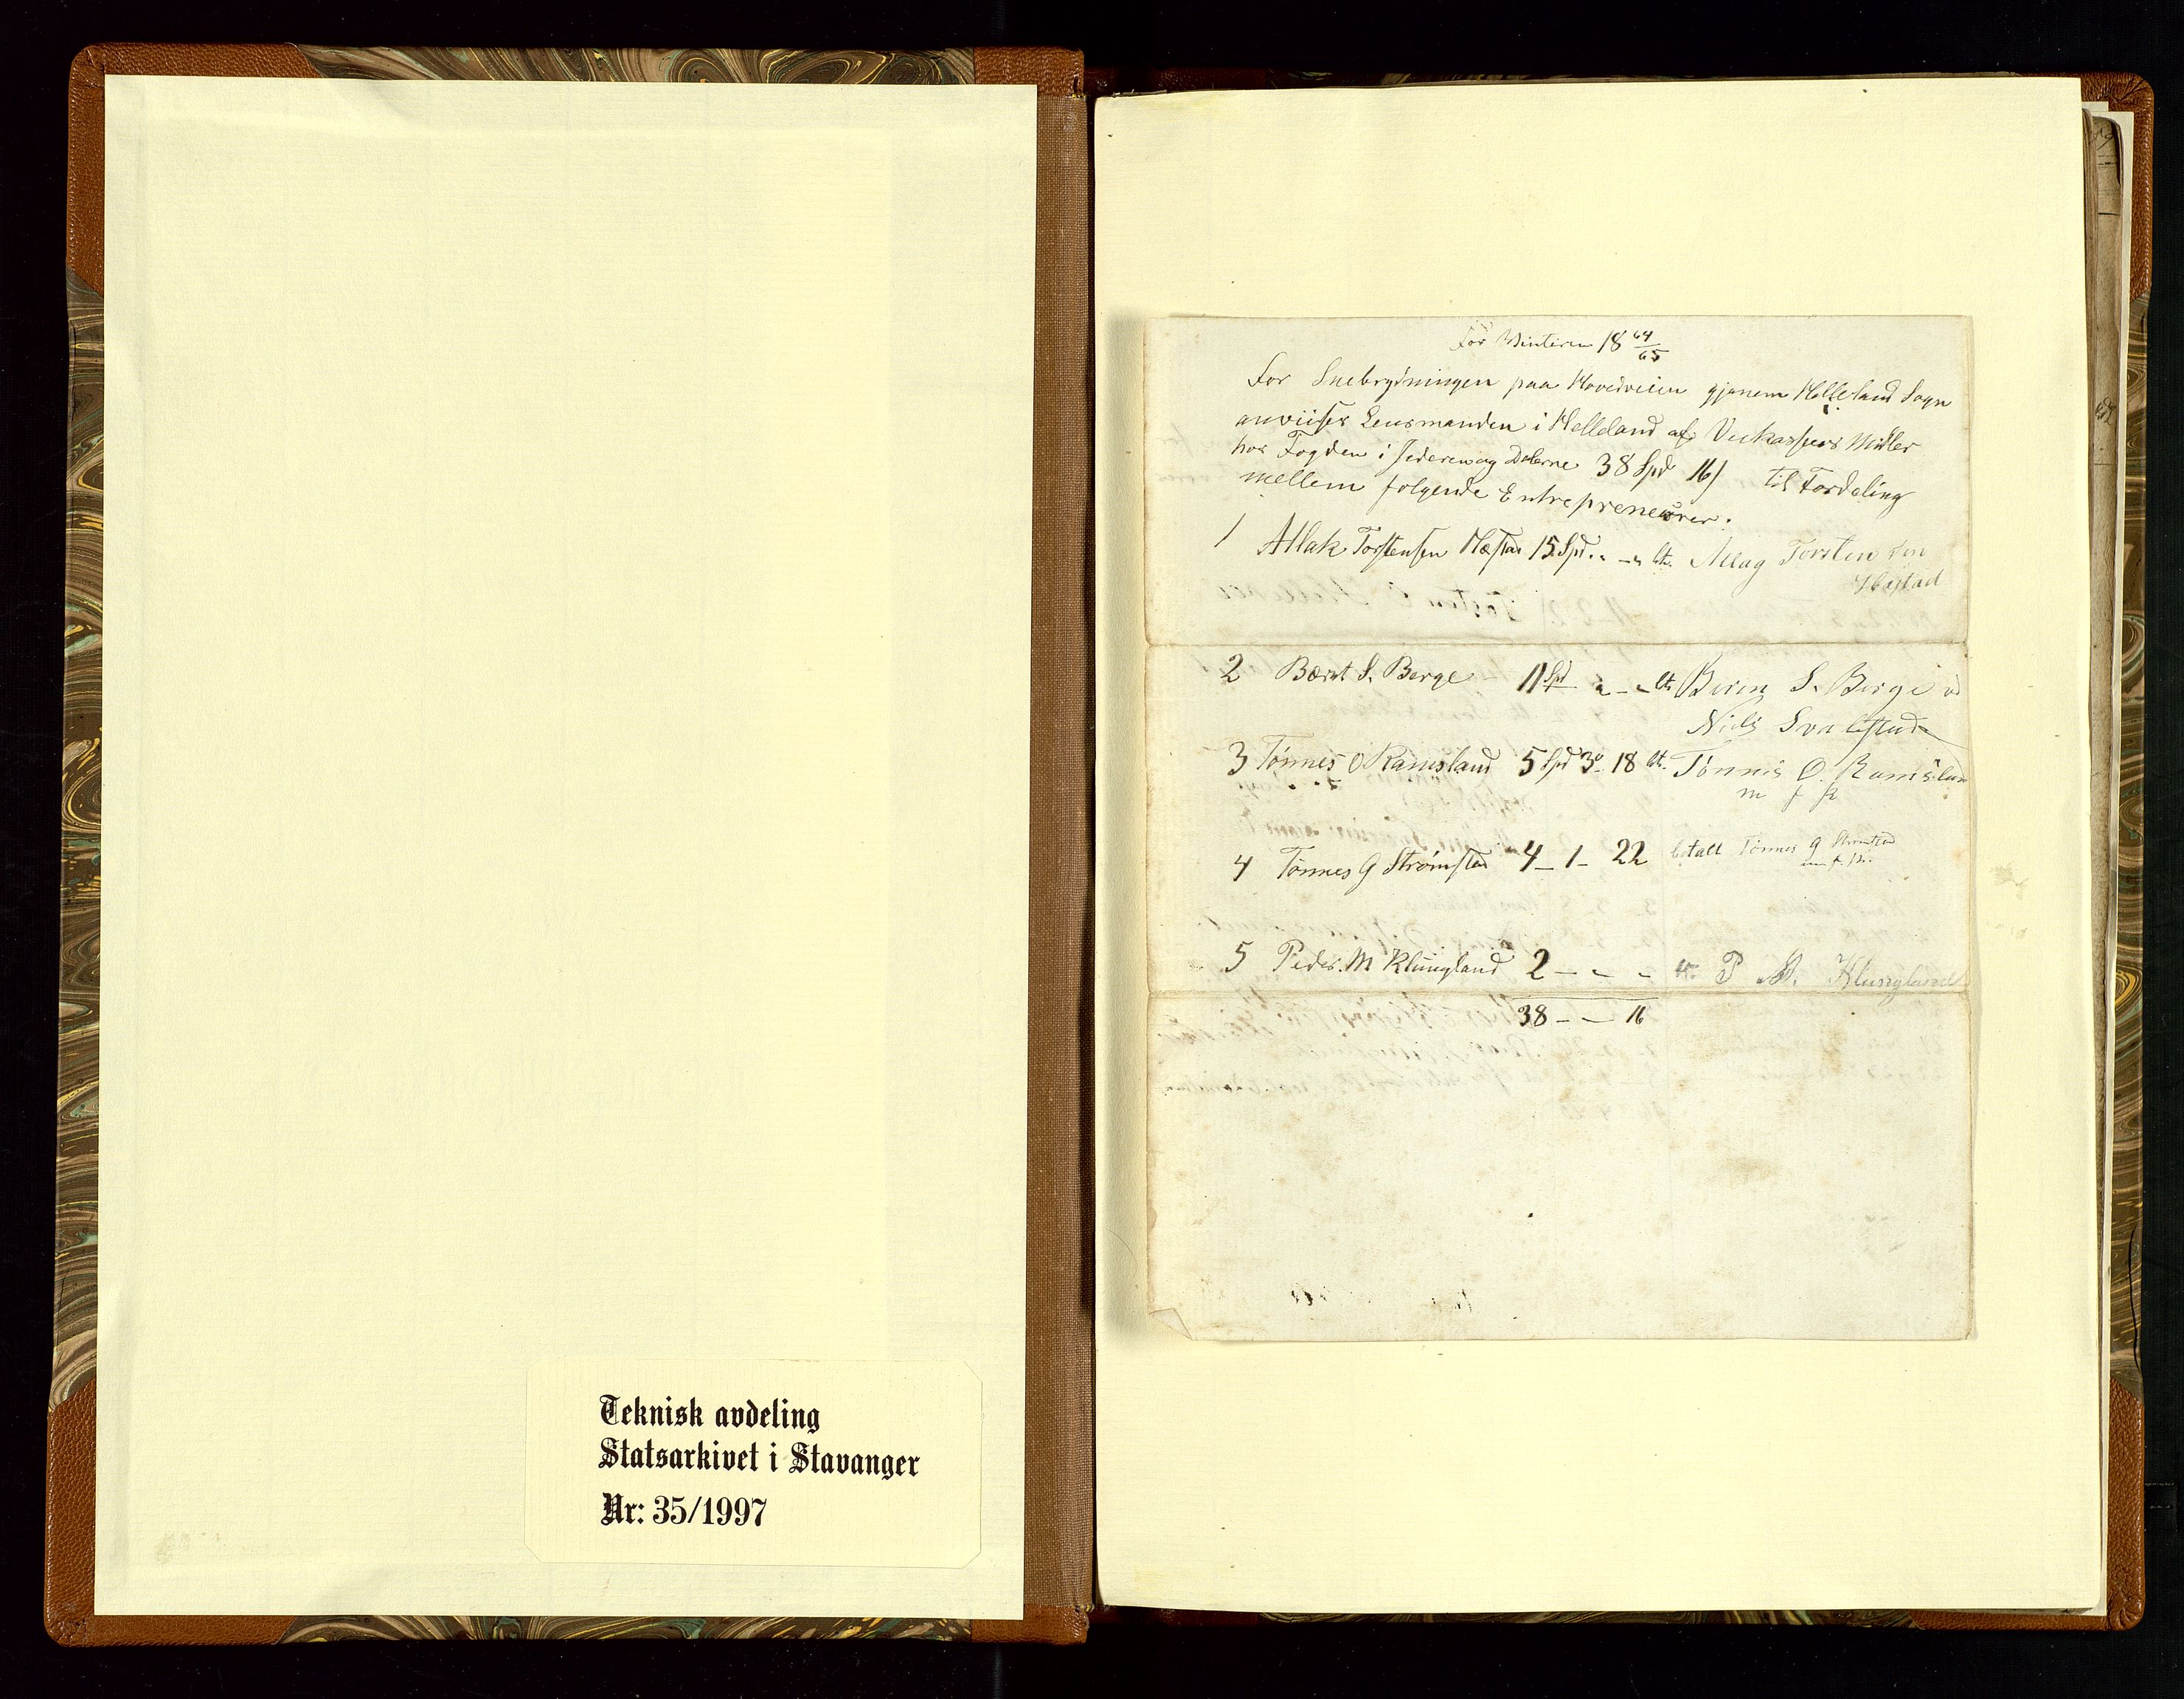 Teknisk avdeling
Statsarkivet i Stavanger
Nr: 35/1997
For Vinteren 18 64/65
For Snebrydningen paa Hovedveien gjenem Helleland Sogn
anviises Lensmanden i Helleland af Veikassens Midler
hos Fogden i Jederen og Dalerne 38 Spd 16 s til Fordeling
mellem følgende Entrepreneurer.
1 Atlak Torstensen Hæstad 15 Spd. " - " bt. Atlag Torsten sen
Hæstad
2 Bærnt S. Berge 11 Spd " - " bt. Beren S. Berge ved
Niels Svalestad
3 Tønnes O Ramsland 5 Spd 3 - 18 bt. Tønnis O. Ramsland
m f p
4 Tønnes G Strømstad 4 - 1 - 22 betalt Tønnes G Strømstad
m. f. p.
5 Peder. M Klungland 2 - " - " bt. P M. Klungland
38 - " - 16